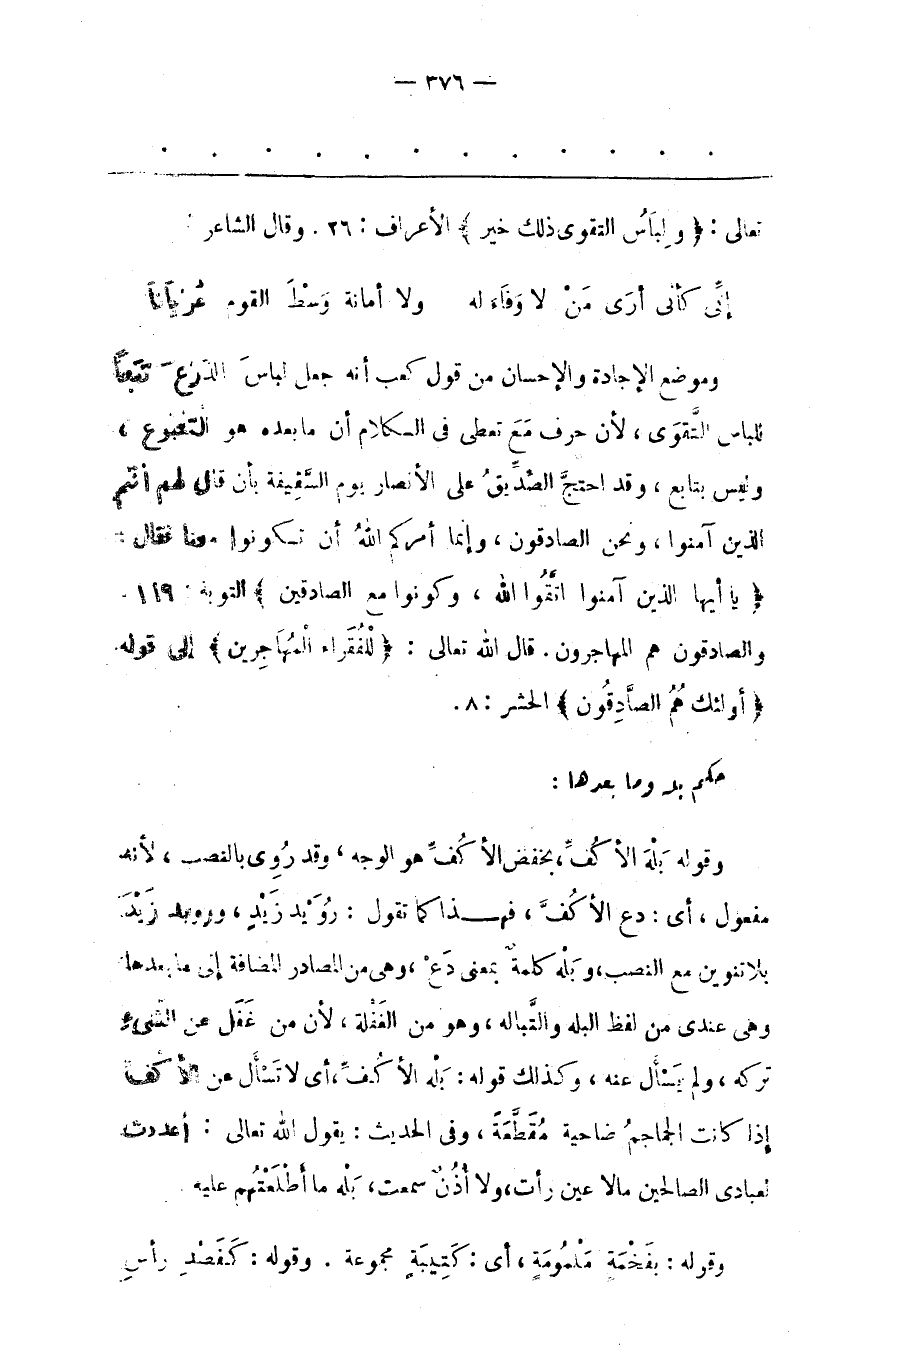 — ٣٧٦ —
تعالى : ﴿ و لِبَاسُ التقوى ذلك خير ﴾ الأعراف : ٢٦ . وقال الشاعر :
إنِّى كأنى أرَى مَنْ لا وَفَاءَ له ولا أمانة وَسْطَ القوم عُرْيَاناً
وموضع الإجادة والإحسان من قول كعب أنه جعل لباسَ الدِّرْعِ تَبَعاً
للباس التَّقوَى ، لأن حرف مَعَ تعطى فى الكلام أن ما بعده هو المتبُوع ،
وليس بتابع ، وقد احتجَّ الصِّدِّيقُ على الأنصار يوم السَّقِيفة بأن قال لهم أنتم
الذين آمنوا ، ونحن الصادقون ، وإنما أمركم اللهُ أن تكونوا معنا فقال :
﴿ يا أيها الذين آمنوا اتَّقُوا الله ، وكونوا مع الصادقين ﴾ التوبة : ١١٩ .
والصادقون هم المهاجرون . قال الله تعالى : ﴿ لِلْفُقَراء الْمُهَاجِرين ﴾ إلى قوله
﴿ أولئك هُمُ الصَّادِقُون ﴾ الحشر : ٨ .
حكم بله وما بعدها :
وقوله بَلْهَ الأكُفِّ ، بخفض الأكُفِّ هو الوجه ، وقد رُوِى بالنصب ، لأنه
مفعول ، أى : دع الأكُفَّ ، فهذا كما تقول : رُوَيْد زَيْدٍ ، ورويد زَيْدَ
بلا تنوين مع النصب ، و بَلْه كلمةٌ بمعنى دَعْ ، وهى من المصادر المضافة إلى ما بعدها
وهى عندى من لفظ البله والتَّباله ، وهو من الغَفْلة ، لأن من غَفَل عن الشىء
تركه ، ولم يَسْأل عنه ، وكذلك قوله : بَلْه الأكُفِّ ، أى لا تَسْأَل عن الأكفِّ
إذا كانت الجماجمُ ضاحية مُقَطَّعَةً ، وفى الحديث : يقول الله تعالى : أعددت
لعبادى الصالحين مالا عين رأت ، ولا أذُنٌ سمعت ، بَلْه ما أطْلَعْتُهم عليه .
وقوله : بفَخْمَةٍ مَلْمُومَةٍ ، أى : كَتِيبَةٍ مجموعة . وقوله : كَفَصْدِ رأسِ